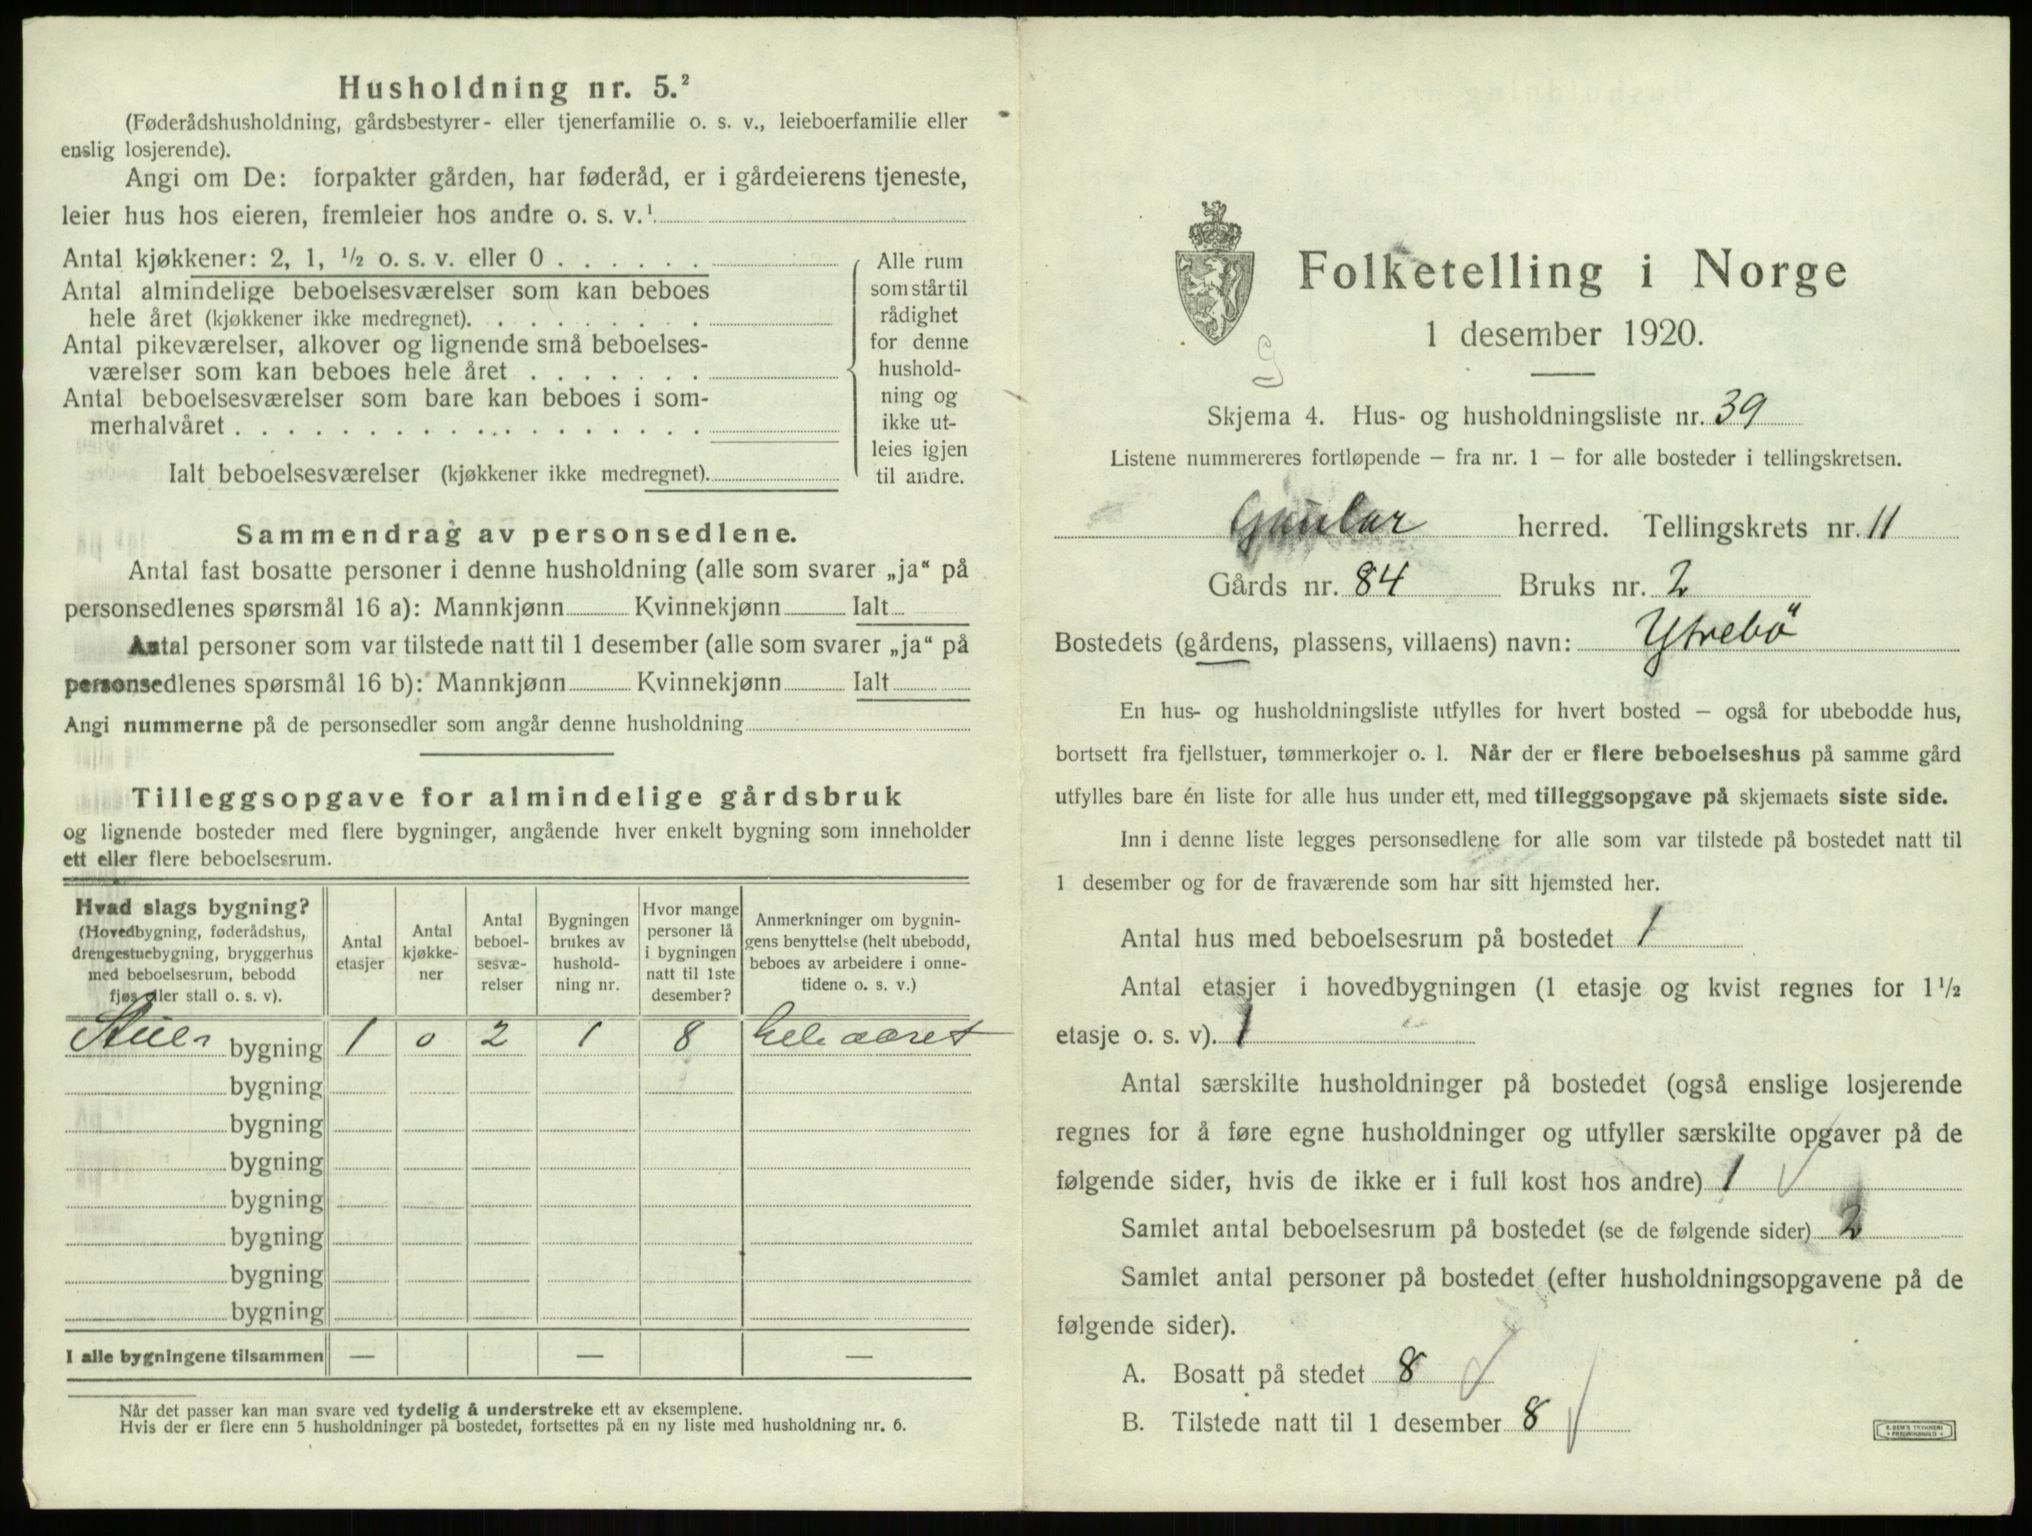 Husholdning nr. 5.²
(Føderådshusholdning, gårdsbestyrer- eller tjenerfamilie o. s. v., leieboerfamilie eller
enslig losjerende).
Angi om De: forpakter gården, har føderåd, er i gårdeierens tjeneste,
leier hus hos eieren, fremleier hos andre o. s. v.¹
Antal kjøkkener: 2, 1, ½ o. s. v. eller 0
Antal almindelige beboelsesværelser som kan beboes
hele året (kjøkkener ikke medregnet).
Antal pikeværelser, alkover og lignende små beboelses-
værelser som kan beboes hele året
Antal beboelsesværelser som bare kan beboes i som-
merhalvåret
Ialt beboelsesværelser (kjøkkener ikke medregnet).
Alle rum
som står til
rådighet
for denne
hushold-
ning og
ikke ut-
leies igjen
til andre.
Sammendrag av personsedlene.
Antal fast bosatte personer i denne husholdning (alle som svarer „ja“ på
personsedlenes spørsmål 16 a): Mannkjønn Kvinnekjønn Ialt
Antal personer som var tilstede natt til 1 desember (alle som svarer „ja“ på
personsedlenes spørsmål 16 b): Mannkjønn Kvinnekjønn Ialt
Angi nummerne på de personsedler som angår denne husholdning
Tilleggsopgave for almindelige gårdsbruk
og lignende bosteder med flere bygninger, angående hver enkelt bygning som inneholder
ett eller flere beboelsesrum.
Hvad slags bygning?
(Hovedbygning, føderådshus,
drengestuebygning, bryggerhus
med beboelsesrum, bebodd
fjøs eller stall o. s. v).
Antal
etasjer
Antal
kjøkke-
ner
Antal
beboel-
sesvæ-
relser
Bygningen
brukes av
hushold-
ning nr.
Hvor mange
personer lå
i bygningen
natt til 1ste
desember?
Anmerkninger om bygnin-
gens benyttelse (helt ubebodd,
beboes av arbeidere i onne-
tidene o. s. v.)
bygning 1 0 2 1 8 hele aaret
bygning
bygning
bygning
bygning
bygning
bygning
bygning
I alle bygningene tilsammen — — —
Når det passer kan man svare ved tydelig å understreke ett av eksemplene.
Hvis der er flere enn 5 husholdninger på bostedet, fortsettes på en ny liste med husholdning nr. 6.
Folketelling i Norge
1 desember 1920.
G
Skjema 4. Hus- og husholdningsliste nr. 39
Listene nummereres fortløpende – fra nr. 1 – for alle bosteder i tellingskretsen.
Gaular herred. Tellingskrets nr. 11
Gårds nr. 84 Bruks nr. 2
Bostedets (gårdens, plassens, villaens) navn: Ytrebö
En hus- og husholdningsliste utfylles for hvert bosted – også for ubebodde hus,
bortsett fra fjellstuer, tømmerkojer o. l. Når der er flere beboelseshus på samme gård
utfylles bare én liste for alle hus under ett, med tilleggsopgave på skjemaets siste side.
Inn i denne liste legges personsedlene for alle som var tilstede på bostedet natt til
1 desember og for de fraværende som har sitt hjemsted her.
Antal hus med beboelsesrum på bostedet 1
Antal etasjer i hovedbygningen (1 etasje og kvist regnes for 1½
etasje o. s. v). 1
Antal særskilte husholdninger på bostedet (også enslige losjerende
regnes for å føre egne husholdninger og utfyller særskilte opgaver på de
følgende sider, hvis de ikke er i full kost hos andre) 1
Samlet antal beboelsesrum på bostedet (se de følgende sider) 2
Samlet antal personer på bostedet (efter husholdningsopgavene på de
følgende sider).
A. Bosatt på stedet 8
B. Tilstede natt til 1 desember 8